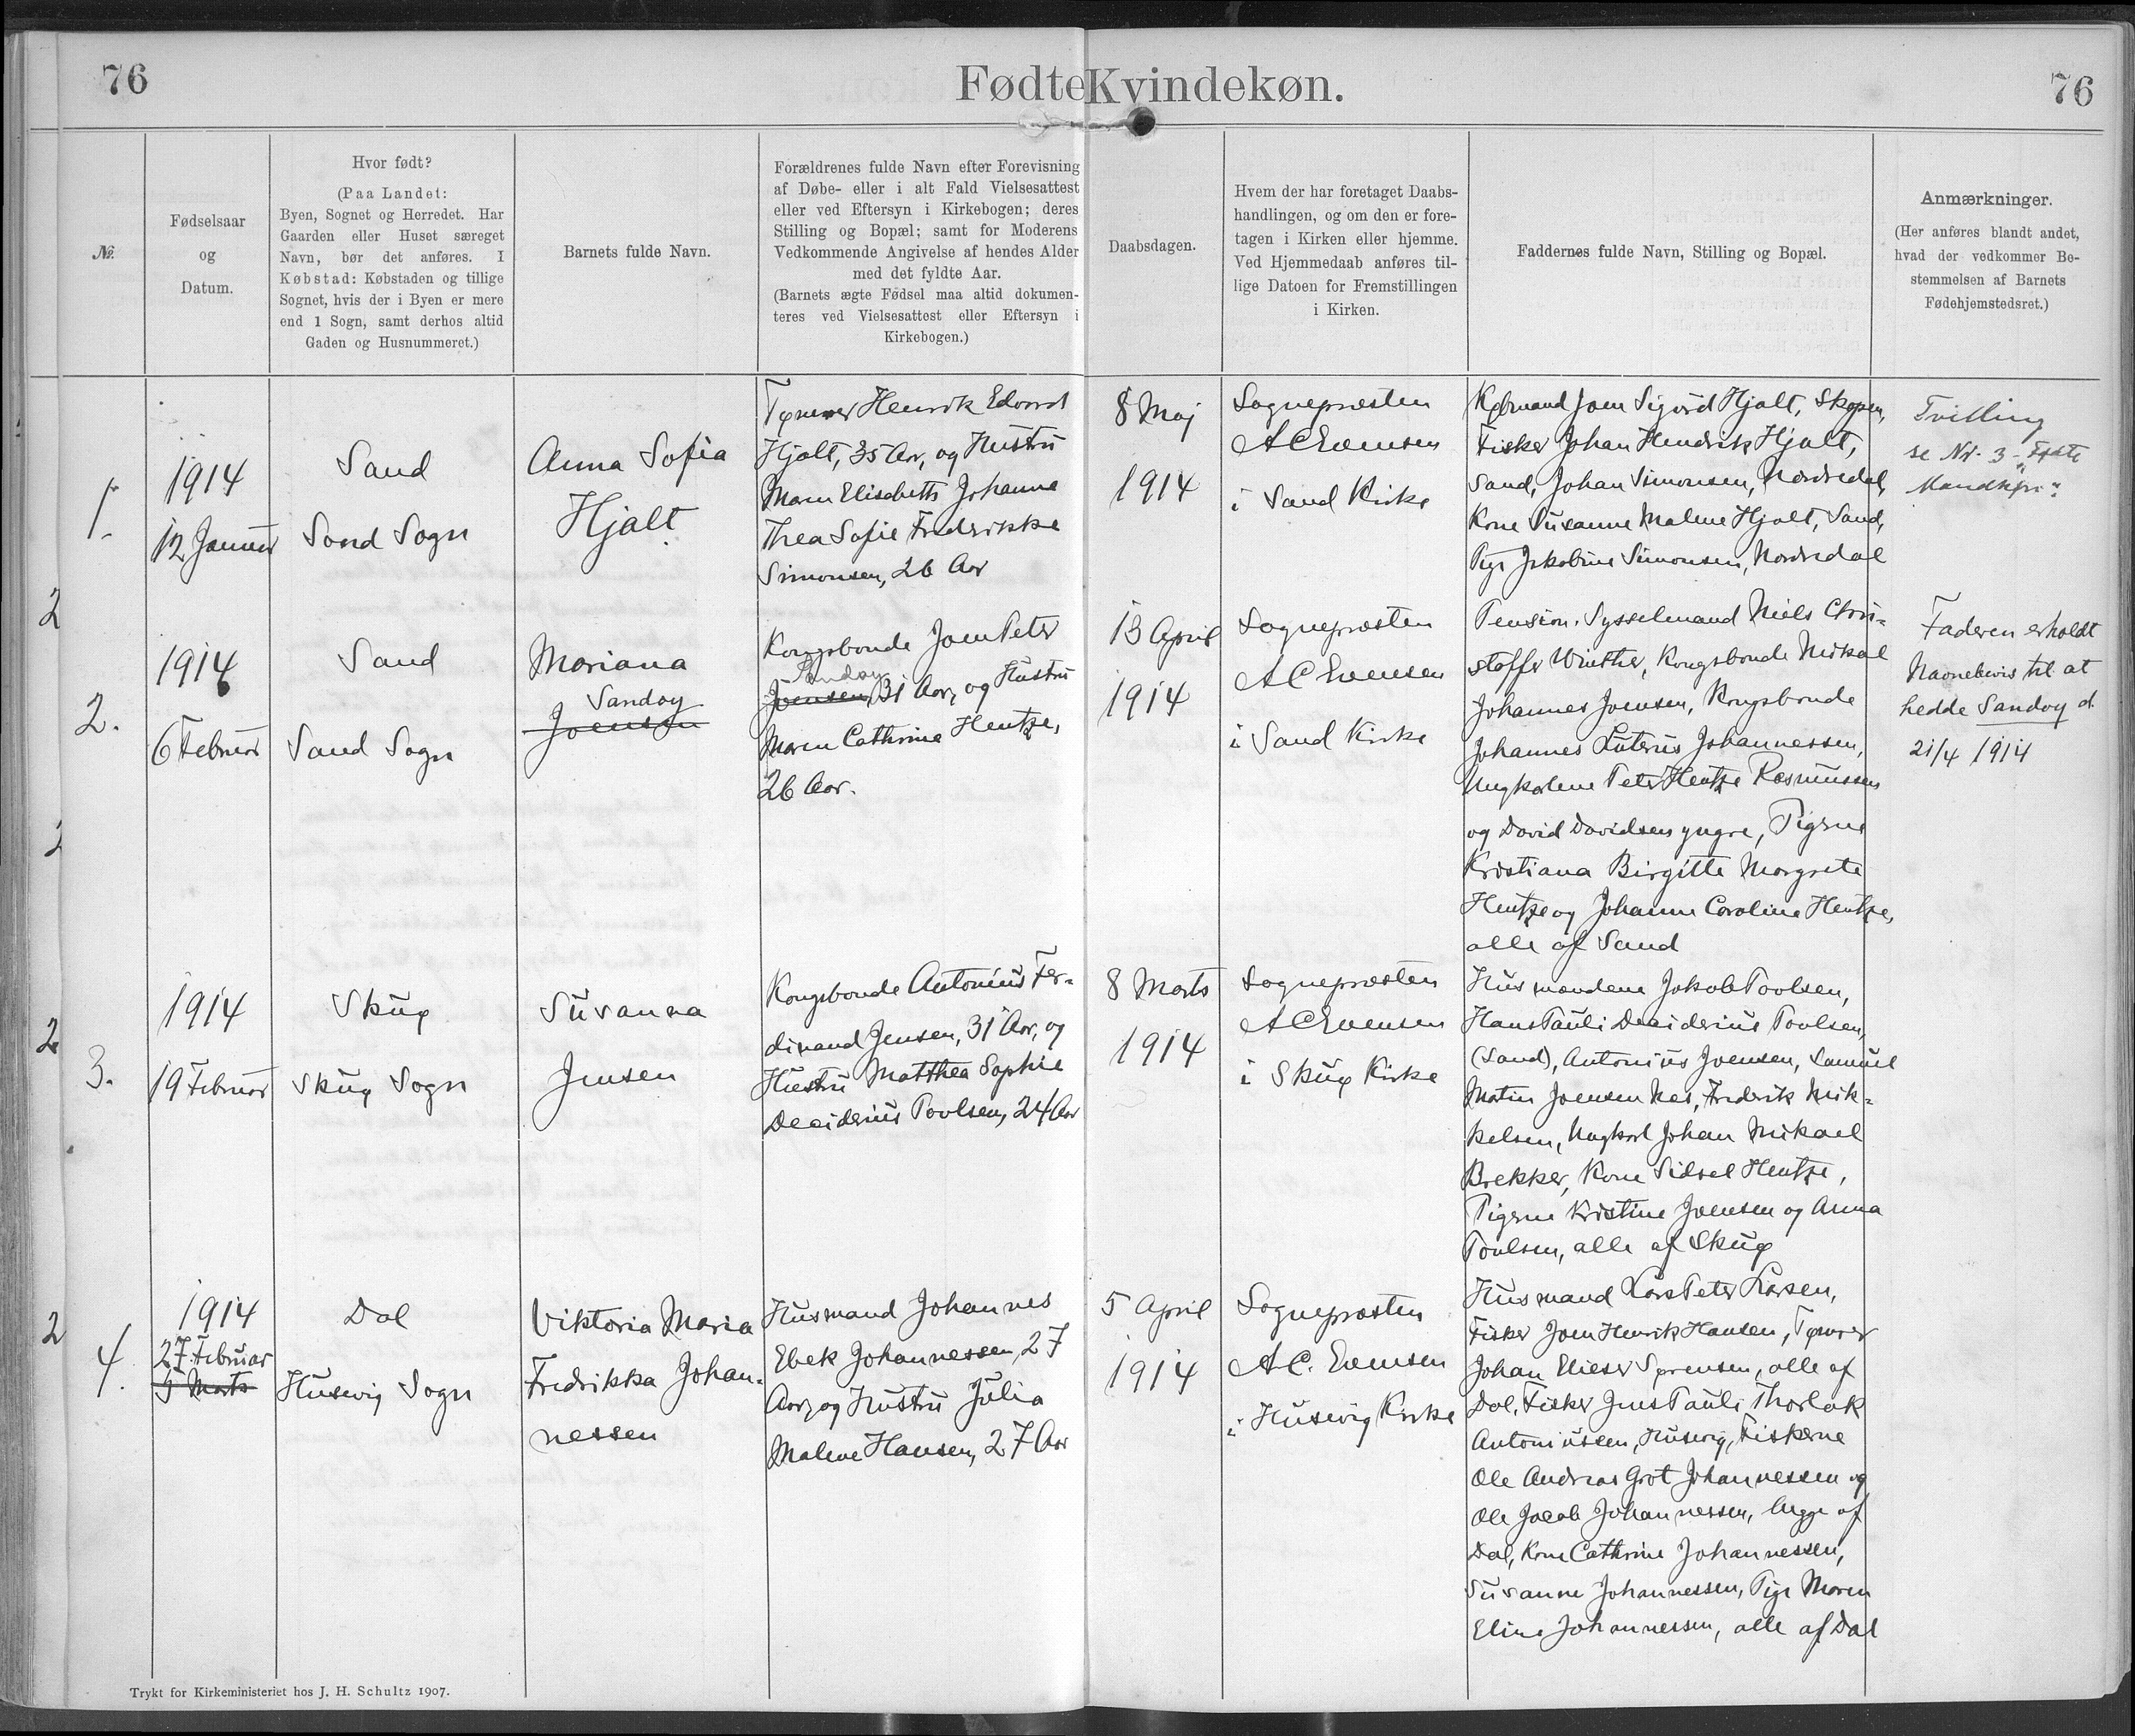 76
Fødte Kvindekøn.
76
№.
Fødselsaar
og
Datum.
Hvor født?
(Paa Landet:
Byen, Sognet og Herredet. Har
Gaarden eller Huset særeget
Navn, bør det anføres. I
Købstad: Købstaden og tillige
Sognet, hvis der i Byen er mere
end 1 Sogn, samt derhos altid
Gaden og Husnummeret.)
Barnets fulde Navn.
Forældrenes fulde Navn efter Forevisning
af Døbe- eller i alt Fald Vielsesattest
eller ved Eftersyn i Kirkebogen; deres
Stilling og Bopæl; samt for Moderens
Vedkommende Angivelse af hendes Alder
med det fyldte Aar.
(Barnets ægte Fødsel maa altid dokumen-
teres ved Vielsesattest eller Eftersyn i
Kirkebogen.)
Daabsdagen.
Hvem der har foretaget Daabs-
handlingen, og om den er fore-
tagen i Kirken eller hjemme.
Ved Hjemmedaab anføres til-
lige Datoen for Fremstillingen
i Kirken.
Faddernes fulde Navn, Stilling og Bopæl.
Anmærkninger.
(Her anføres blandt andet,
hvad der vedkommer Be-
stemmelsen af Barnets
Fødehjemstedsret.)
1.
1914
12 Januar
Sand
Sand Sogn
Anna Sofia
Hjalt
Tømrer Henrik Edvard
Hjalt, 35 Aar, og Hustru
Maren Elisabeth Johanne
Thea Sofie Fredrikke
Simonsen, 26 Aar
8 Maj
1914
Sognepræsten
A C Evensen
i Sand Kirke
Købmand Joen Sigvrd Hjalt, Skopen,
Fisker Johan Hendrik Hjalt,
Sand, Johan Simonsen, Nordredal,
Kone Susanne Malene Hjalt, Sand,
Pige Jakobine Simonsen, Nordredal
Tvilling
se Nr. 3 - Fødte
Mandkøn"
2
2.
1914
6 Februar
Sand
Sand Sogn
Mariana
Sandoy
Joensen
Kongsbonde Joen Peter
Sandoy
Joensen, 31 Aar, og Hustru
Maren Cathrine Hentze,
26 Aar.
13 April
1914
Sognepræsten
A C Evensen
i Sand Kirke
Pension. Sysselmand Niels Chri-
stoffer Winther, Kongsbonde Mikal
Johannes Joensen, Kongsbonde
Johannes Luterus Johannessen,
Ungkarlene Peter Hentze Rasmussen
og David Davidsen yngre, Pigerne
Kristiana Birgitte Margrete
Hentze og Johanne Caroline Hentze,
alle af Sand
Faderen erholdt
Navnebevis til at
hedde Sandoy d.
21/4 1914
2
2
3.
1914
19 Februar
Skuø
Skuø Sogn
Susanna
Jensen
Kongsbonde Antonius Fer-
dinand Jensen, 31 Aar, og
Hustru Matthea Sophie
Deciderius Poulsen, 24 Aar
8 Marts
1914
Sognepræsten
A C Evensen
i Skuø Kirke
Husmandene Jakob Poulsen,
Hans Pauli Desiderius Poulsen,
(Sand), Antonius Joensen, Samuel
Matin Joensen Nes, Fredrik Mik-
kelsen, Ungkarl Johan Mikael
Brekker, Kone Sidsel Hentze,
Pigerne Kristine Joensen og Anna
Poulsen, alle af Skuø
2
4.
1914
27. Februar
5 Marts
Dal
Husevig Sogn
Viktoria Maria
Fredrikka Johan-
nessen
Husmand Johannes
Ebek Johannessen, 27
Aar, og Hustru Julia
Malene Hansen, 27 Aar
5 April
1914
Sognepræsten
A C. Evensen
i Husevig Kirke
Husmand Lars Peter Larsen,
Fisker Joen Henrik Hansen, Tømrer
Johan Elieser Sørensen, alle af
Dal, Fisker Jens Pauli Thorlak
Antoniussen, Husevig, Fiskerne
Ole Andreas Grot Johannessen og
Ole Jacob Johannessen, begge af
Dal, Kone Cathrine Johannessen,
Susanne Johannessen, Pige Maren
Elina Johannessen, alle af Dal
Trykt for Kirkeministeriet hos J. H. Schultz 1907.